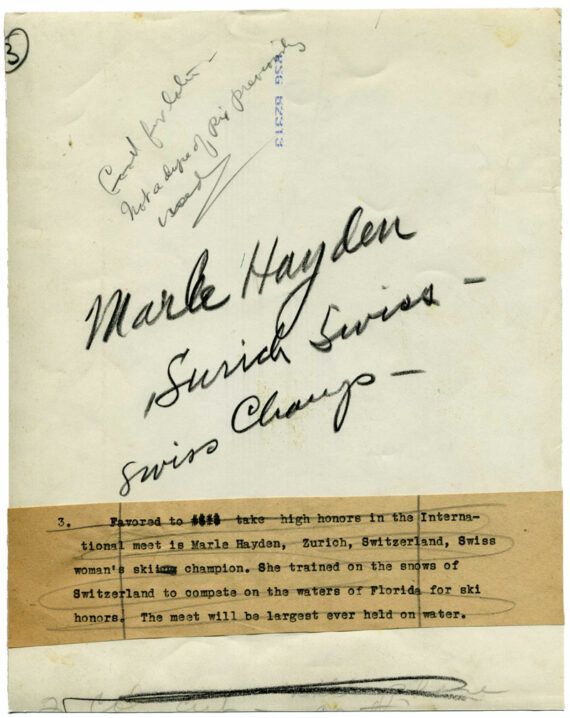 3
Good for later -
Not a dupe of pix previously
used
NSG 82313
Marle Hayden
Surich Swiss -
Swiss Champs -
3. Favored to take high honors in the Interna-
tional meet is Marle Hayden, Zurich, Switzerland, Swiss
woman's skiing champion. She trained on the snows of
Switzerland to compete on the waters of Florida for ski
honors. The meet will be largest ever held on water.